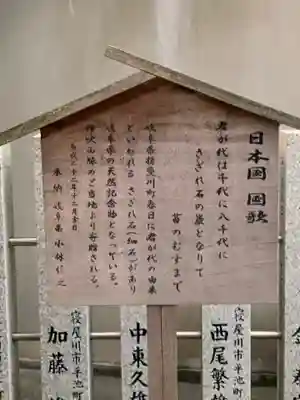 日本国 国歌
君が代は千代に八千代に
さざれ石の巌となりて
苔のむすまで
岐阜県揖斐川町春日に君が代の由来
といわれる さざれ石(細石)があり
岐阜県の天然記念物となっている。
伊吹山脈のご当地より寄贈される。
平成二十二年十二月吉日
奉納 岐阜県 小林
寝屋川市平池町
西尾繁
中東久雄
寝屋川市平池町
加藤